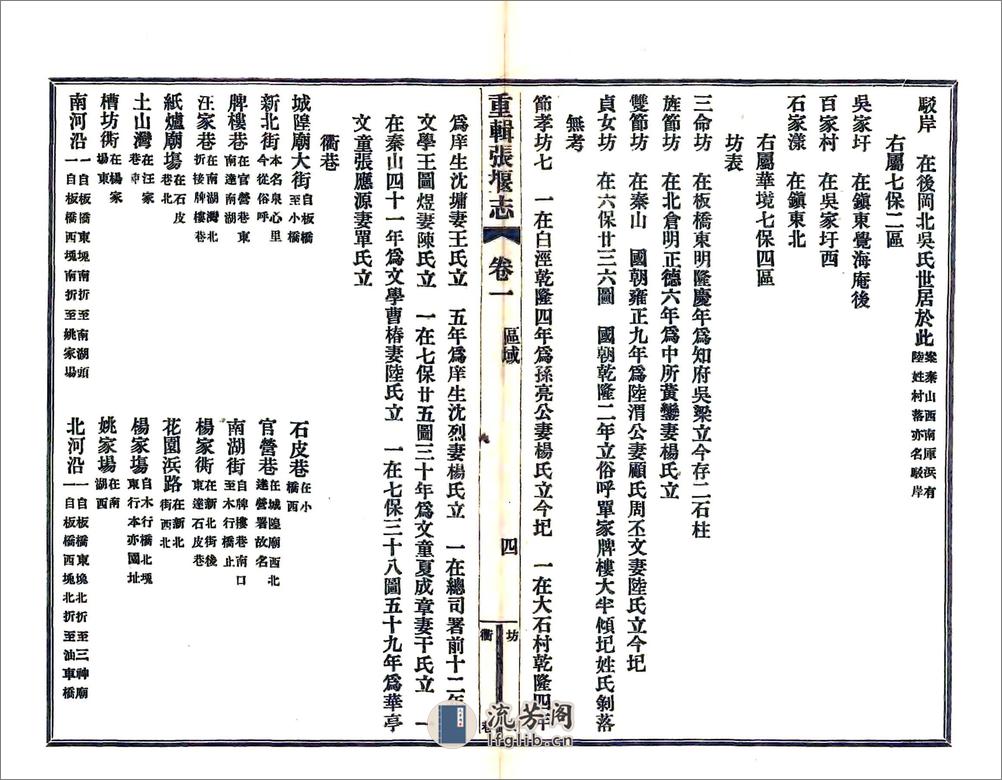 駁岸　在後岡北吳氏世居於此案秦山西南厙浜有陸姓村落亦名駁岸
右屬七保二區
吳家圩　在鎮東覺海庵後
百家村　在吳家圩西
石家漾　在鎮東北
右屬華境七保四區
坊表
三命坊　在板橋東明隆慶年爲知府吳梁立今存二石柱
旌節坊　在北倉明正德六年爲中所黃鑾妻楊氏立
雙節坊　在秦山　國朝雍正九年爲陸渭公妻顧氏周丕文妻陸氏立今圮
貞女坊　在六保廿三六圖　國朝乾隆二年立俗呼單家牌樓大半傾圮姓氏剝落
無考
節孝坊七　一在白涇乾隆四年爲孫亮公妻楊氏立今圮　一在大石村乾隆四年
重輯張堰志　卷一　區域　四　坊　衢巷
爲庠生沈墉妻王氏立　五年爲庠生沈烈妻楊氏立　一在總司署前十二年
文學王圖煜妻陳氏立　一在七保廿五圖三十年爲文童夏成章妻干氏立　一
在秦山四十一年爲文學曹椿妻陸氏立　一在七保三十八圖五十九年爲華亭
文童張應源妻單氏立
衢巷
城隍廟大街自板橋至小橋　石皮巷在小橋西
新北街本名泉心里今從俗呼　官營巷在城隍廟西北達營署故名
牌樓巷在官營巷東南達南湖　南湖街自牌樓巷南口至木行橋止
汪家巷在南湖灣北折接牌樓巷　楊家衖在新北街後東達石皮巷
紙爐廟塲在石皮巷北　花園浜路在新北街西北
土山灣在汪家巷中　楊家塲自木行橋北堍東行本亦園址
槽坊衖在楊家塲東　姚家塲在南湖西
南河沿一自板橋東堍南折至南湖頭一自板橋西堍南折至姚家塲　北河沿一自板橋東堍北折至三神廟一自板橋西堍北折至油車橋
流芳阁
lfglib.cn